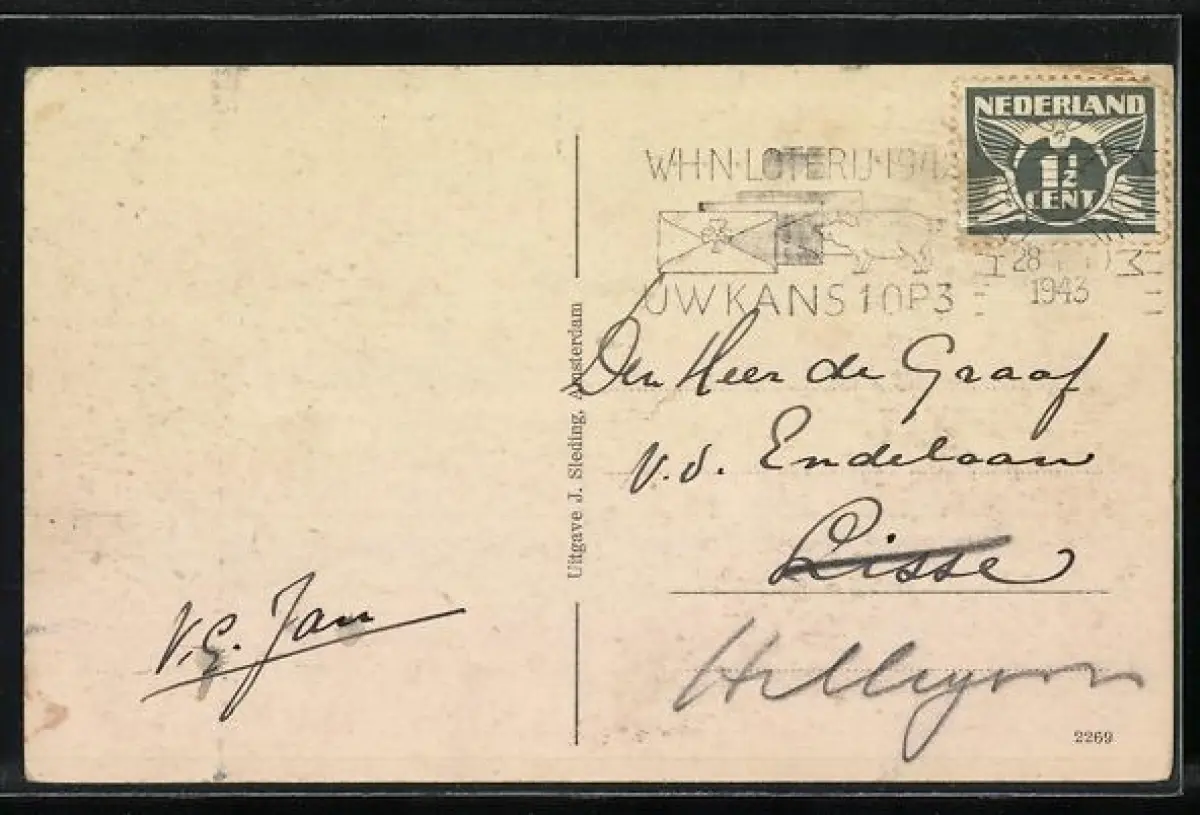 NEDERLAND
1½
CENT
W·H·N·LOTERIJ·1942
UW KANS 1 OP 3
28
1943
Den Heer de Graaf
v.d. Endelaan
Lisse
Hillegom
V.G. Jan
Uitgave J. Sleding, Amsterdam
2269